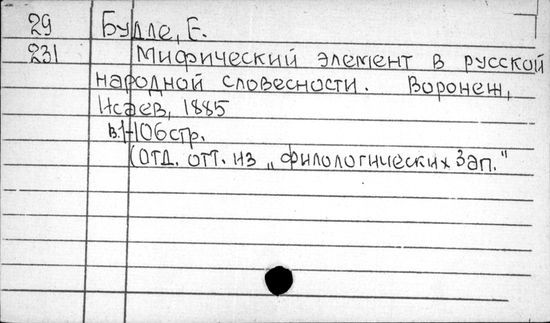 29 Будде, Е.
231 Мифический элемент в русской
народной словесности. Воронеж,
Исаев, 1885
в.1-106 стр.
(отд. отт. из „филологических зап."